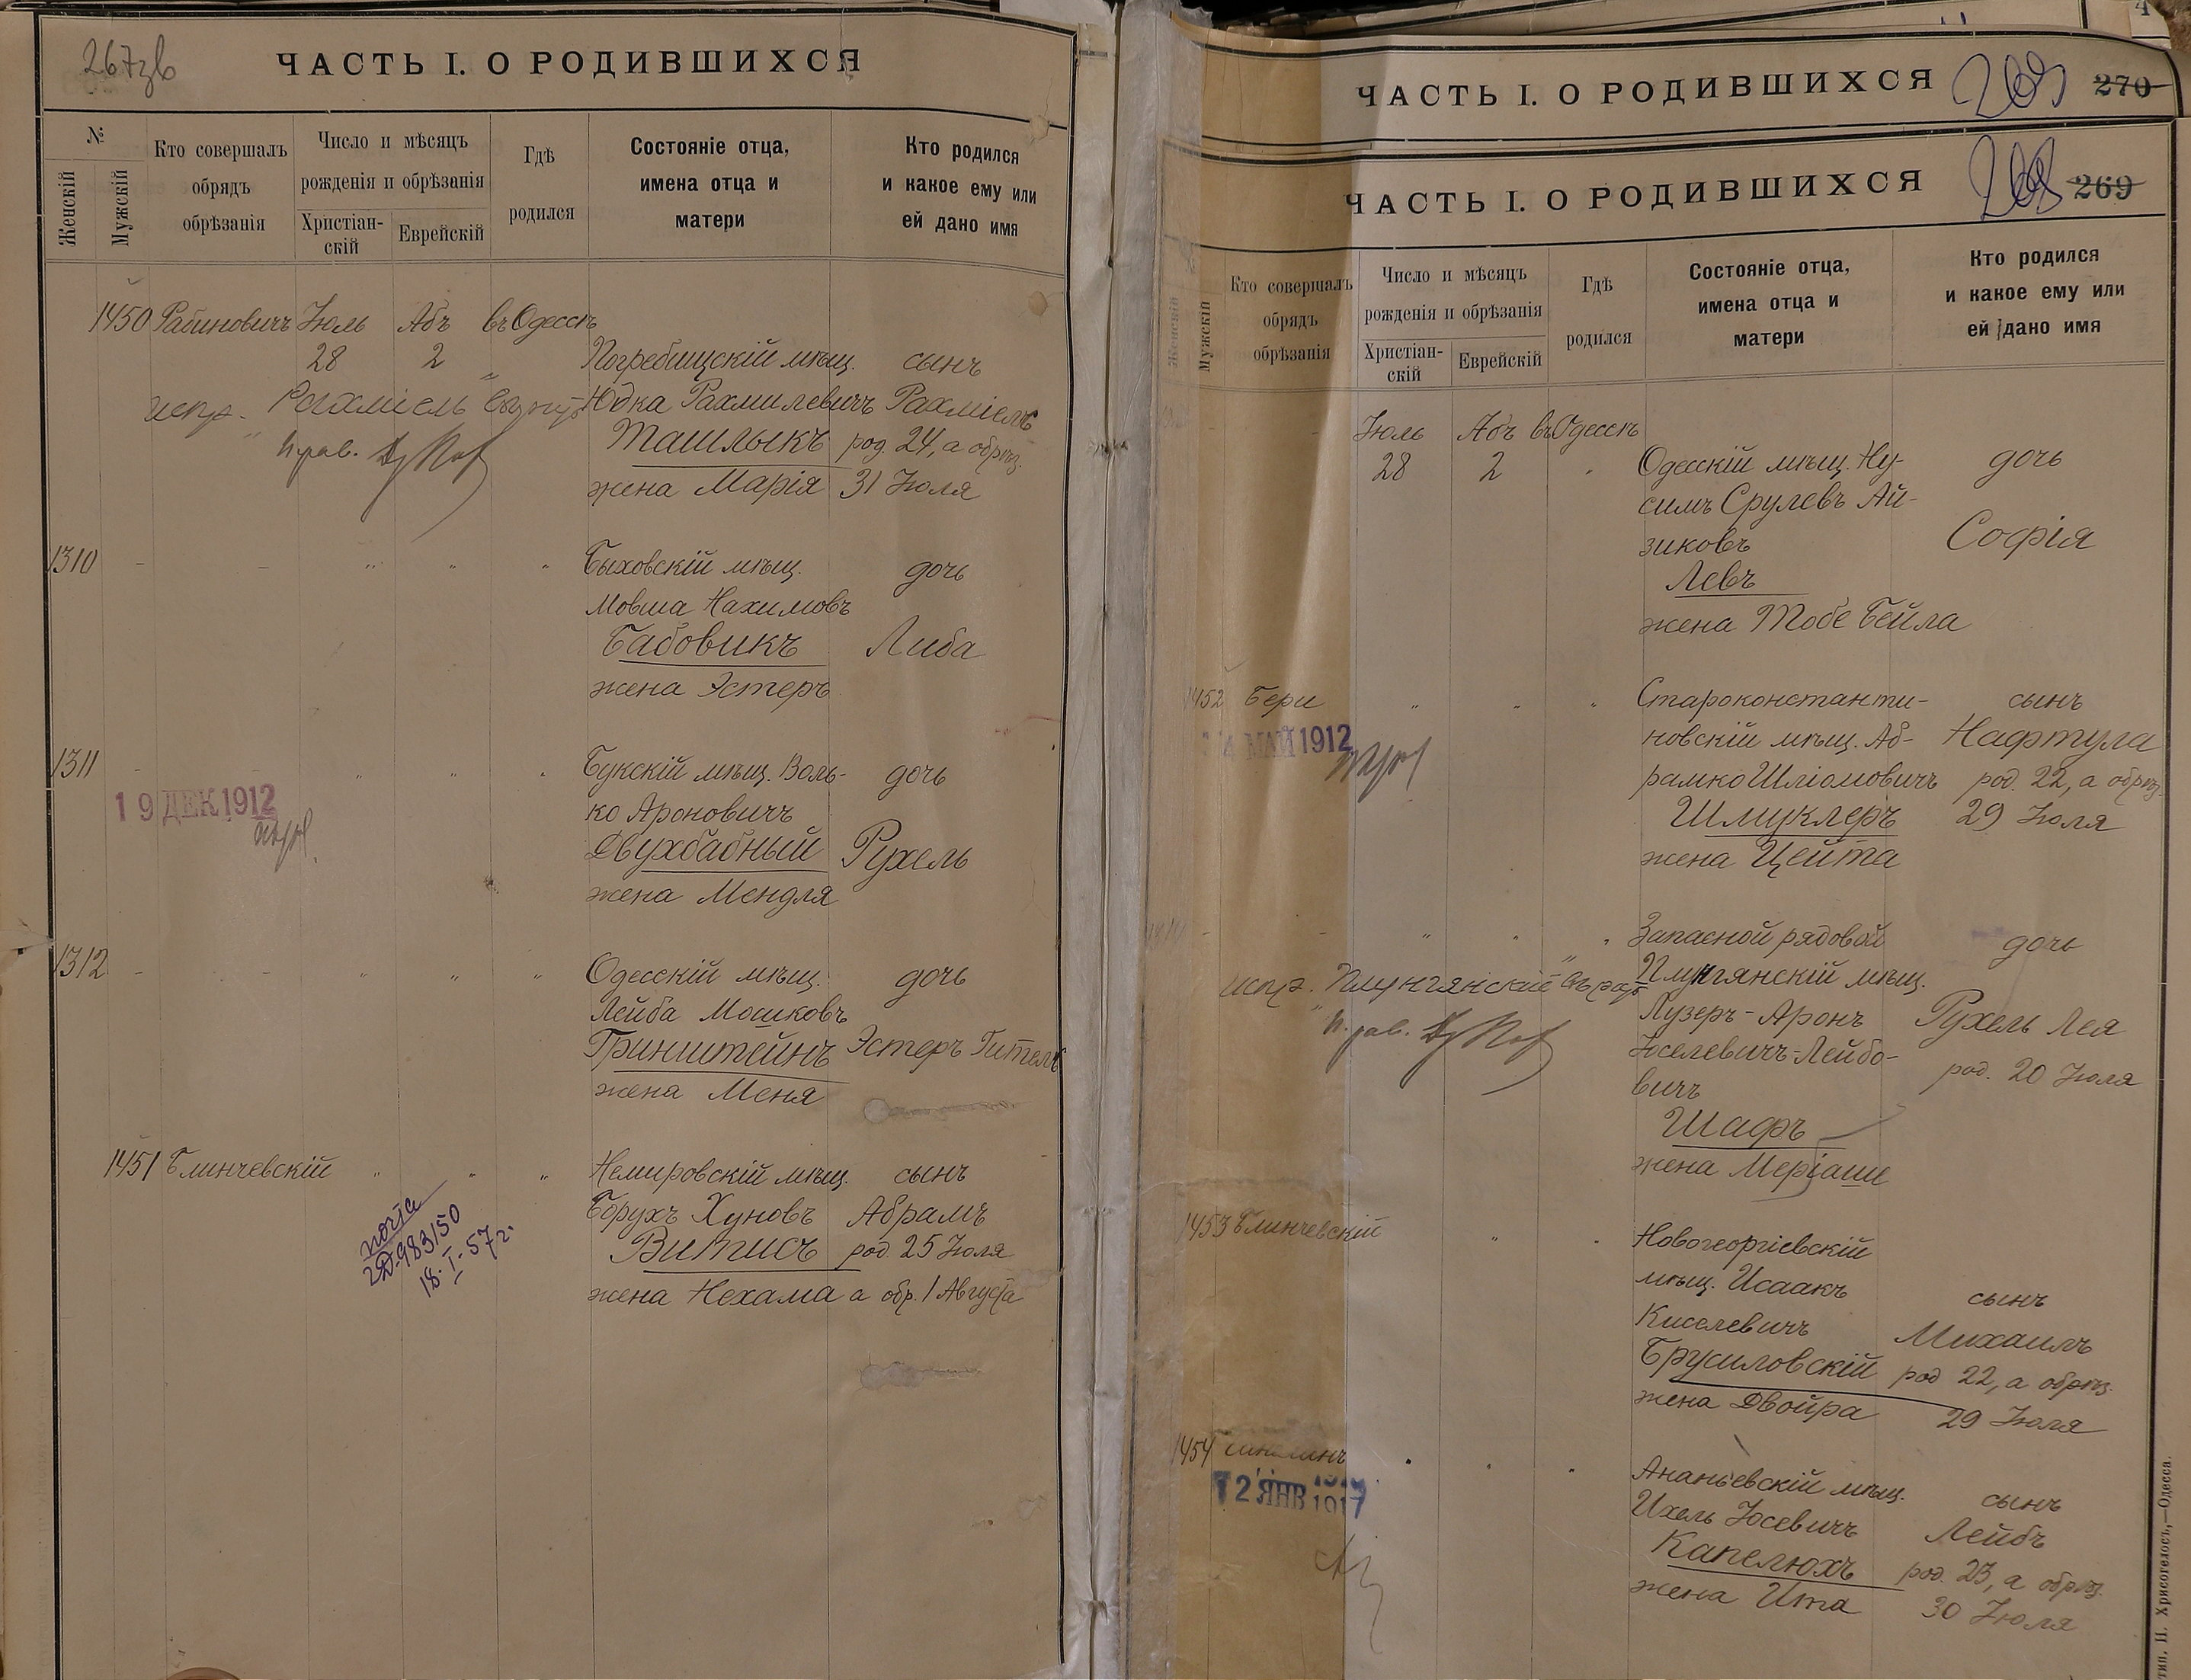 267зв
ЧАСТЬ I. О РОДИВШИХСЯ
№
Женскій
Мужскій
Кто совершалъ
обрядъ
обрѣзанія
Число и мѣсяцъ
рожденія и обрѣзанія
Христіан-
скій
Еврейскій
Гдѣ
родился
Состояніе отца,
имена отца и
матери
Кто родился
и какое ему или
ей дано имя
1450 Рабиновичъ Іюль Абъ въ Одессѣ
28 2 " Погребищскій мѣщ. сынъ
испр. Рахміель Юдка Рахмилевичъ Рахміель
Ташлыкъ род. 24, а обрѣз.
жена Марія 31 Іюля
1310 - - " " " Быховскій мѣщ. дочь
Мовша Нахимовъ
Бабовикъ Либа
жена Эстеръ
1311 - - " " " Букскій мѣщ. Воль- дочь
19 ДЕК 1912
ко Ароновичъ
Двухбабный Рухель
жена Мендля
1312 - - " " " Одесскій мѣщ. дочь
Лейба Мошковъ
Гринштейнъ Эстеръ Гитель
жена Меня
1451 Блинчевскій " " " Немировскій мѣщ. сынъ
Борухъ Хуновъ Абрамъ
Витисъ род. 25 Іюля
жена Нехама а обр. 1 Августа
983150
18.I-57г.
ЧАСТЬ I. О РОДИВШИХСЯ 269 270
ЧАСТЬ I. О РОДИВШИХСЯ 268 269
Женскій
Мужскій
Кто совершалъ
обрядъ
обрѣзанія
Число и мѣсяцъ
рожденія и обрѣзанія
Христіан-
скій
Еврейскій
Гдѣ
родился
Состояніе отца,
имена отца и
матери
Кто родился
и какое ему или
ей дано имя
Іюль Абъ въ Одессѣ
28 2 " Одесскій мѣщ. Ну- дочь
симъ Срулевъ Ай-
зиковъ София
Левъ
жена Тобе Бейла
1452 Бери " " " Староконстанти- сынъ
МАЙ 1912
новскій мѣщ. Аб- Нафтула
рамко Шліомовичъ род. 22, а обрѣз.
Шмуклеръ 29 Іюля
жена Цейта
- - " " " Запасной рядовой дочь
испр. Плунгянскій Плунгянскій мѣщ.
Лузеръ-Аронъ Рухель Лея
Іоселевичъ-Лейбо- род. 20 Іюля
вичъ
Шафъ
жена Меріаше
1453 Блинчевскій " " Новогеоргіевскій
мѣщ. Исаакъ сынъ
Киселевичъ Михаилъ
Брусиловскій род 22, а обрѣз.
жена Двойра 29 Іюля
1454 " " " Ананьевскій мѣщ. сынъ
12 ЯНВ 1917
Ихель Іосевичъ Лейбъ
Капелюхъ род. 23, а обрѣз.
жена Ита 30 Іюля
тип. И. Хрисогелосъ,—Одесса.